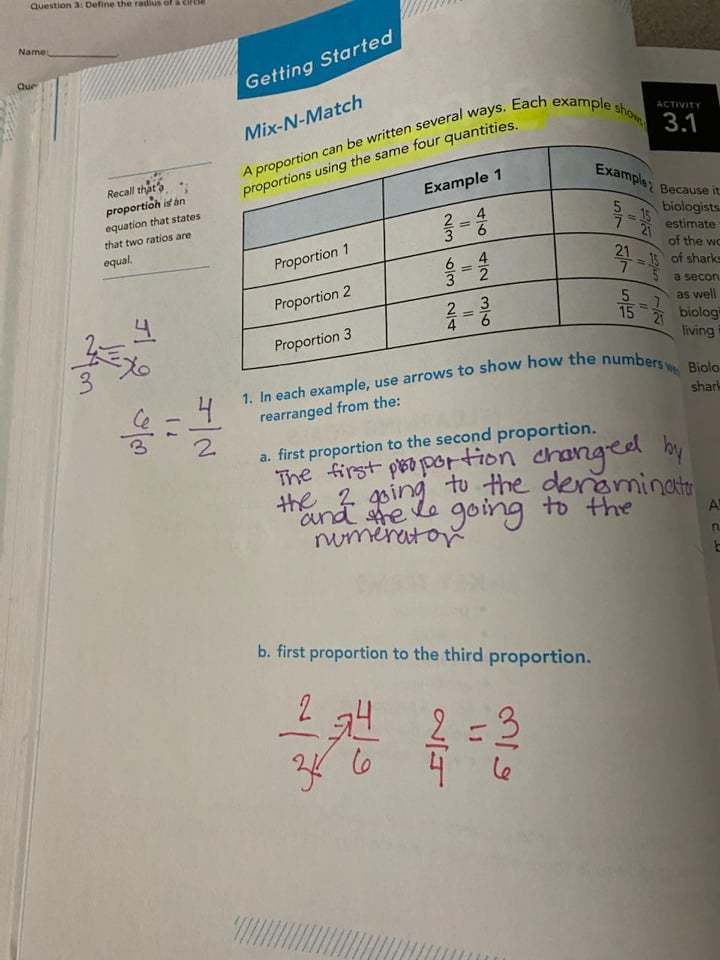 Question 3: Define the radius of a circle
Name:
Getting Started
Mix-N-Match
A proportion can be written several ways. Each example shows
proportions using the same four quantities.
Recall that a
proportion is an
equation that states
that two ratios are
equal.
Example 1
Example 2
Proportion 1
2/3 = 4/6
5/7 = 15/21
Proportion 2
6/3 = 4/2
21/7 = 15/5
Proportion 3
2/4 = 3/6
5/15 = 7/21
2/3 = 4/6
6/3 = 4/2
1. In each example, use arrows to show how the numbers
rearranged from the:
a. first proportion to the second proportion.
The first proportion changed by
the 2 going to the denominator
and the 6 going to the
numerator
b. first proportion to the third proportion.
2/3 = 4/6 2/4 = 3/6
ACTIVITY
3.1
Because it
biologists
estimate
of the
of sharks
a secon
as well
biolog
living
Biolo
shark